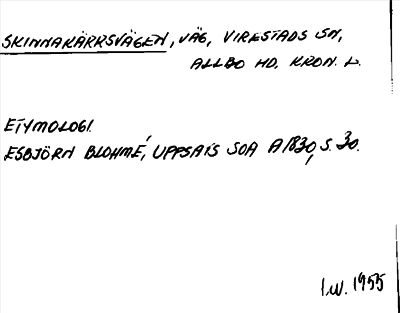 SKINNAKÄRRSVÄGEN, VÄG, VIRESTADS SN,
ALLBO HD, KRON. L.
ETYMOLOGI.
ESBJÖRN BLOHMÉ, UPPSATS SOA A1830, S. 30.
I.W. 1955